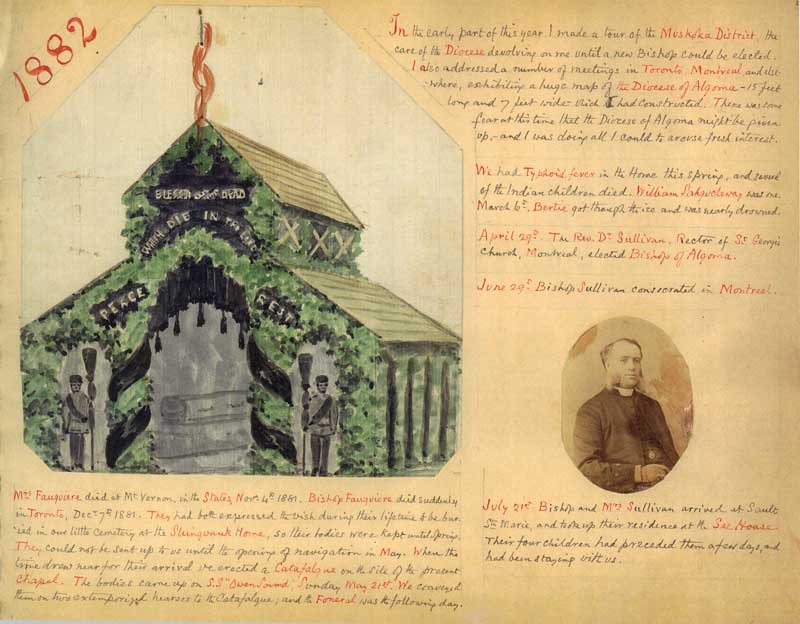 1882
BLESSED ARE THE DEAD
WHICH DIE IN THE LORD
PEACE
REST
In the early part of this year I made a tour of the Muskoka District, the
care of the Diocese devolving on me until a new Bishop could be elected.
I also addressed a number of meetings in Toronto, Montreal, and else-
where, exhibiting a huge map of the Diocese of Algoma - 15 feet
long and 7 feet wide - which I had constructed. There was some
fear at this time that the Diocese of Algoma might be given
up, - and I was doing all I could to arouse fresh interest.
We had Typhoid fever in the Home this spring, and several
of the Indian children died. William was one.
March 6th. Bertie got through the ice and was nearly drowned.
April 29th. The Rev. Dr Sullivan, Rector of St. Georges
Church, Montreal, elected Bishop of Algoma.
June 29th Bishop Sullivan consecrated in Montreal.
Mrs Fauquiere died at Mt Vernon, in the States, Nov. 4th 1881. Bishop Fauquiere died suddenly
in Toronto, Decr 7th 1881. They had both expressed the wish during their lifetime to be bur-
ied in our little cemetery at the Shingwauk Home, so their bodies were kept until spring.
They could not be sent up to us until the opening of navigation in May. When the
time drew near for their arrival we erected a Catafalque on the site of the present
Chapel. The bodies came up on S.S "Owen Sound", Sunday May 21st. We conveyed
them on two extemporized hearses to the Catafalque; and the Funeral was the following day.
July 21st Bishop and Mrs Sullivan arrived at Sault
Ste Marie, and took up their residence at the See House.
Their four children had preceded them a few days, and
had been staying with us.